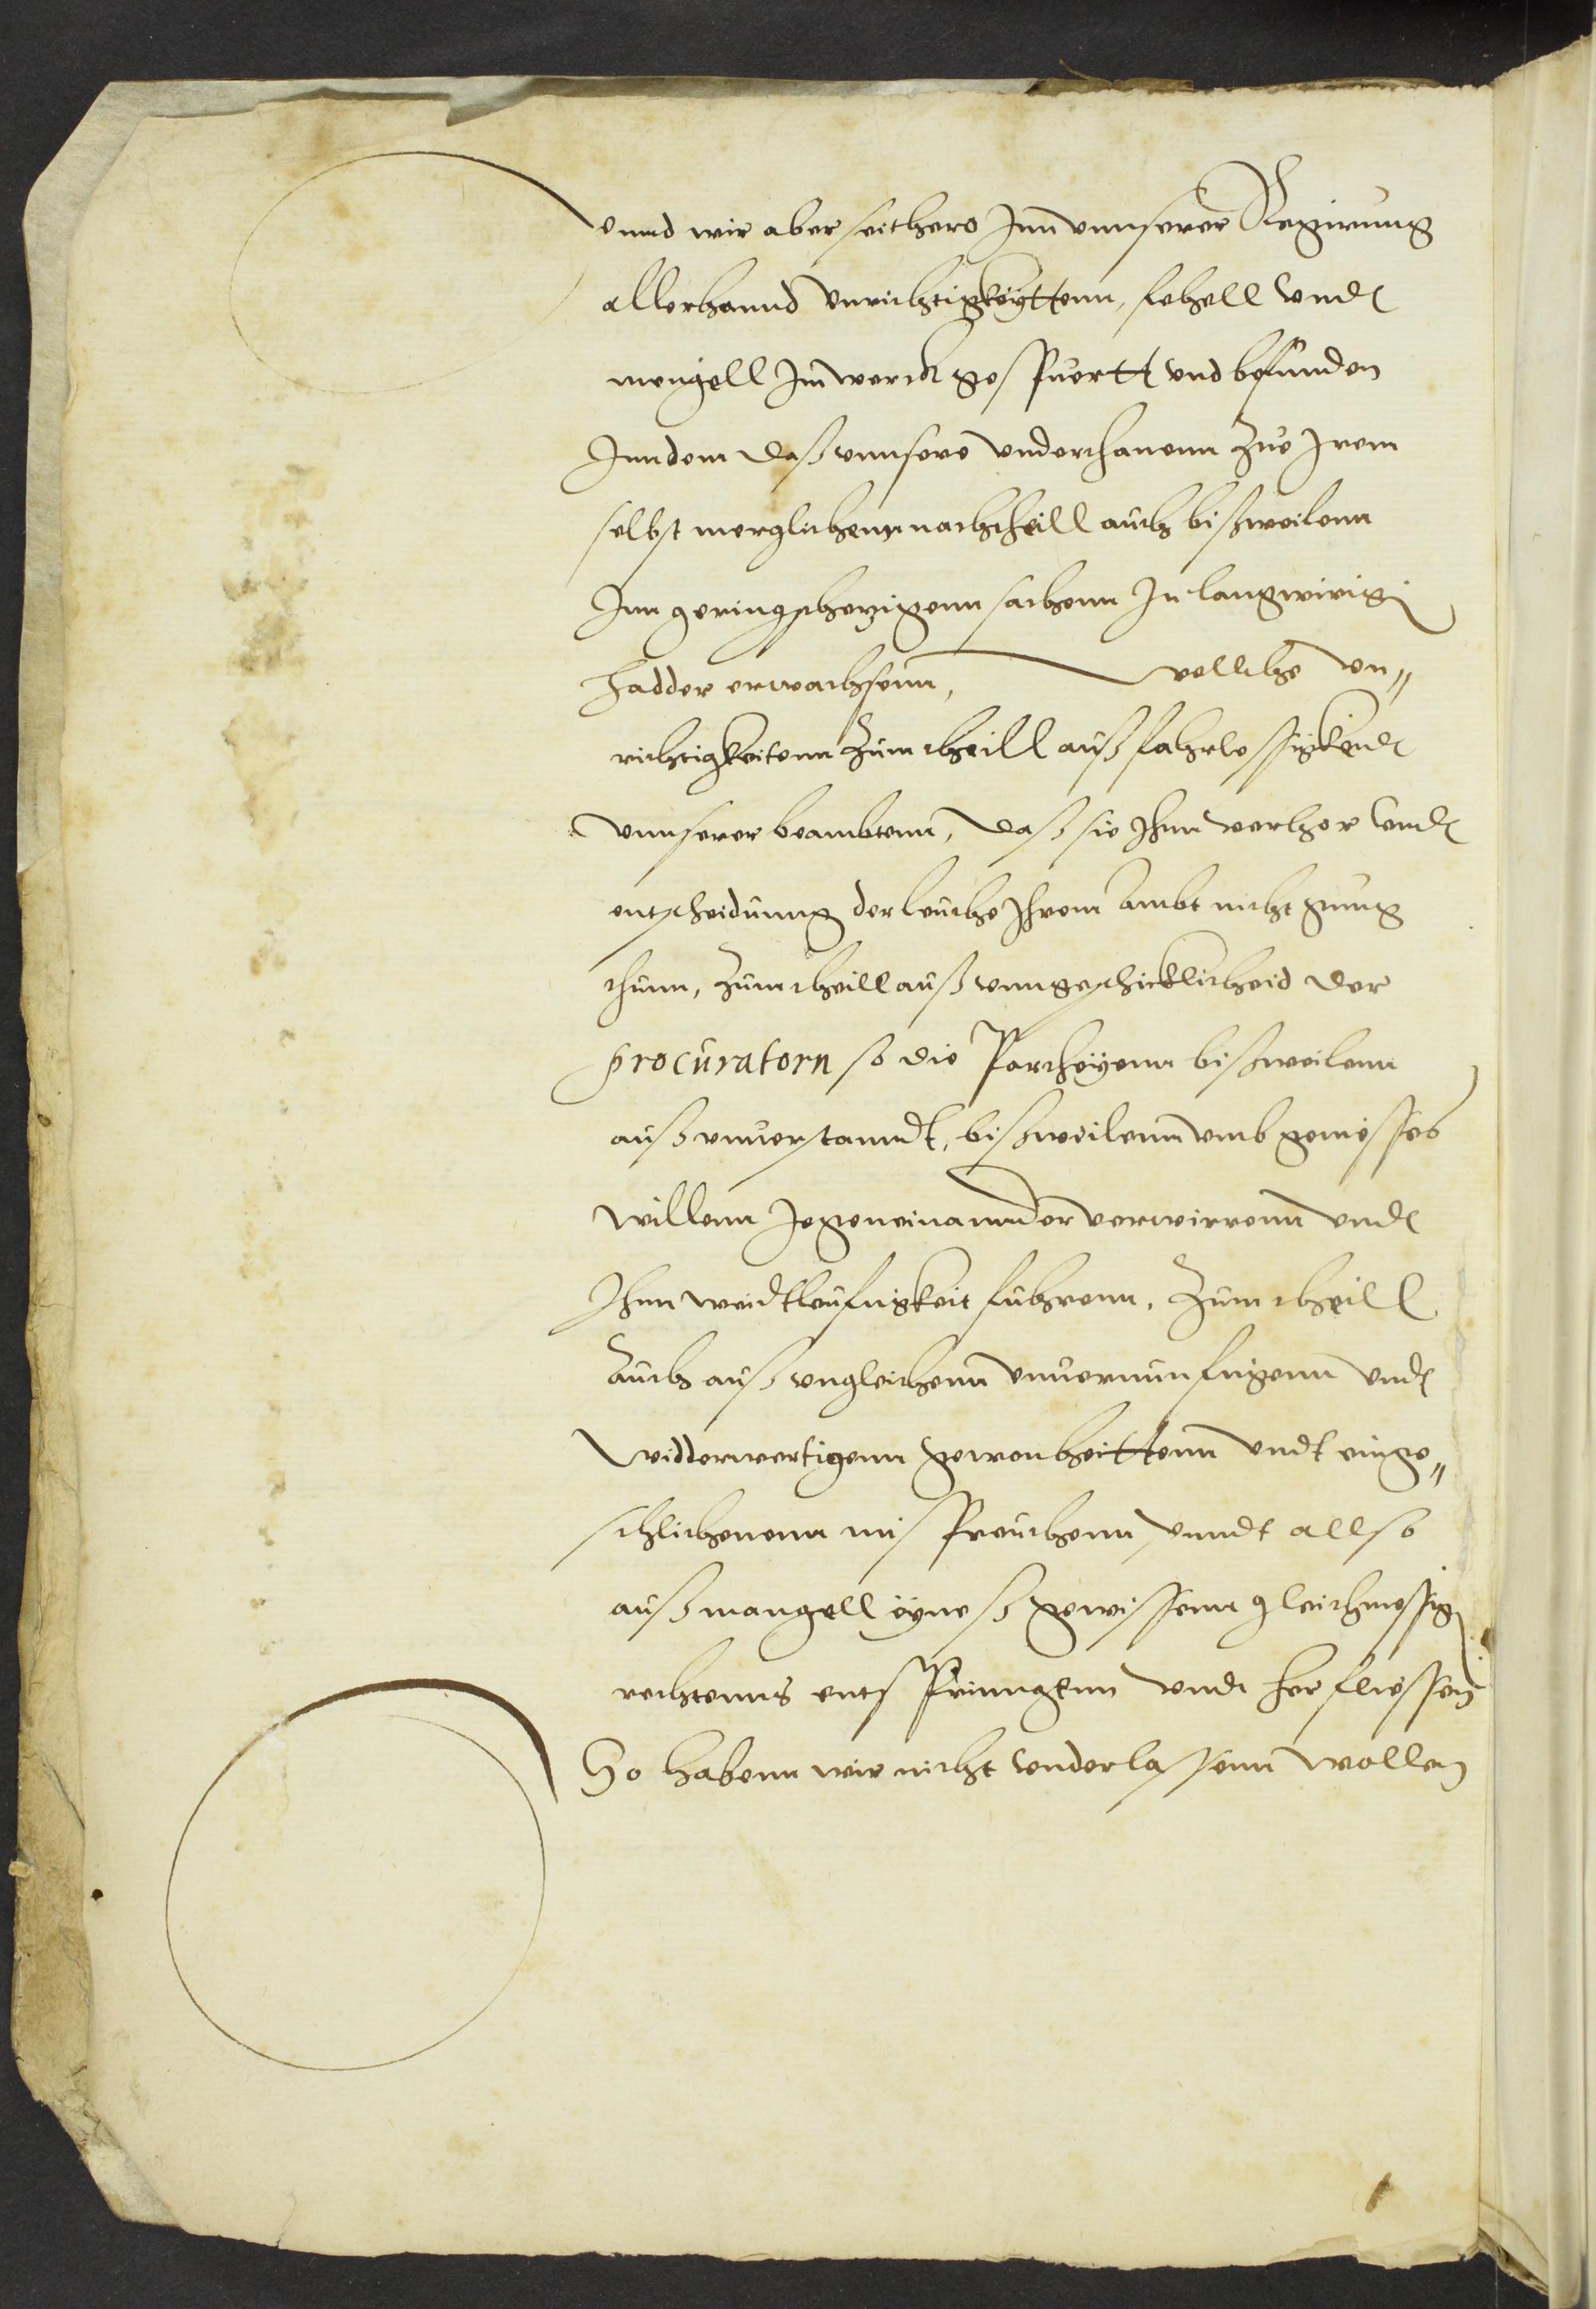 vnnd wir aber seithero Inn vnnserer Regirung
allerhannd vnrichtigkeyttenn, fehell vnd
mengell Im werck gespuertt vnd befunden
Inn dem daß vnnsere vnderthanenn zue Irem
selbst merglichenn nachtheill auch bißweilenn
Inn geringschetzigenn sachenn In langwirig
hadder erwachsenn, wellche vn„
richtigkeitenn zum theill auß fahrlessigkeid
vnnserer beambtenn, daß sie Ihnn verhor vnd
entscheidung der leuthe Ihrem ambt nicht gnug
thunn, zum theill auß vnngeschicklicheid der
procuratorn so die Partheyenn bißweilenn
auß vnuerstanndt, bißweilenn vmb geniesses
willenn Iegeneinannder verwirrenn vnd
Ihnn weidtleufigkeit fuhrenn, zum theill
auch auß vngleichenn vnuernunfftigenn vnd
widderwertigenn gewonheittenn vndt einge„
schlichenenn mispreuchenn vnndt allso
auß mangell eyneß gewissenn gleichmessig
rechtenns entspringenn vnd herfliessen
So habenn wir nicht vnderlassenn wollen